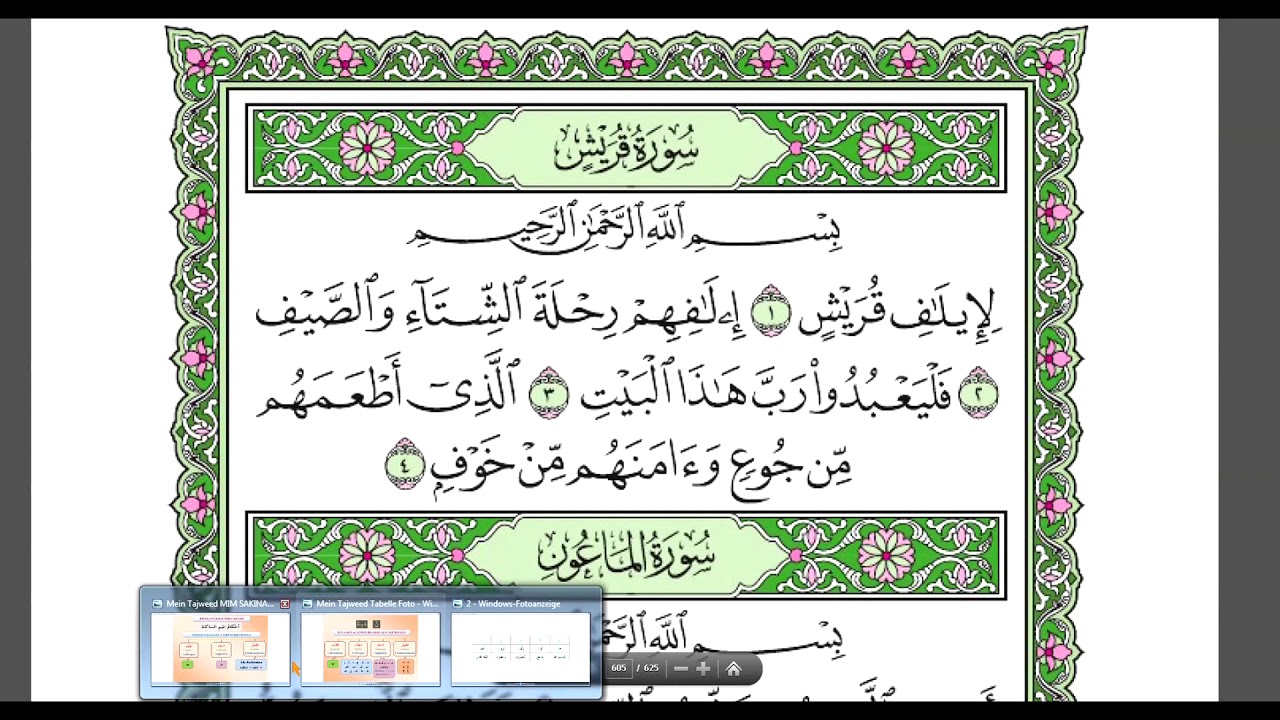 سُورَةُ قُرَيْشٍ
بِسْمِ ٱللَّهِ ٱلرَّحْمَٰنِ ٱلرَّحِيمِ
لِإِيلَٰفِ قُرَيْشٍ ١ إِۦلَٰفِهِمْ رِحْلَةَ ٱلشِّتَآءِ وَٱلصَّيْفِ
٢ فَلْيَعْبُدُوا۟ رَبَّ هَٰذَا ٱلْبَيْتِ ٣ ٱلَّذِىٓ أَطْعَمَهُم
مِّن جُوعٍ وَءَامَنَهُم مِّنْ خَوْفٍۭ ٤
سُورَةُ ٱلْمَاعُونِ
بِسْمِ ٱللَّهِ
Mein Tajweed MIM SAKINA...
Mein Tajweed Tabelle Foto - Wi...
2 - Windows-Fotoanzeige
605 / 625